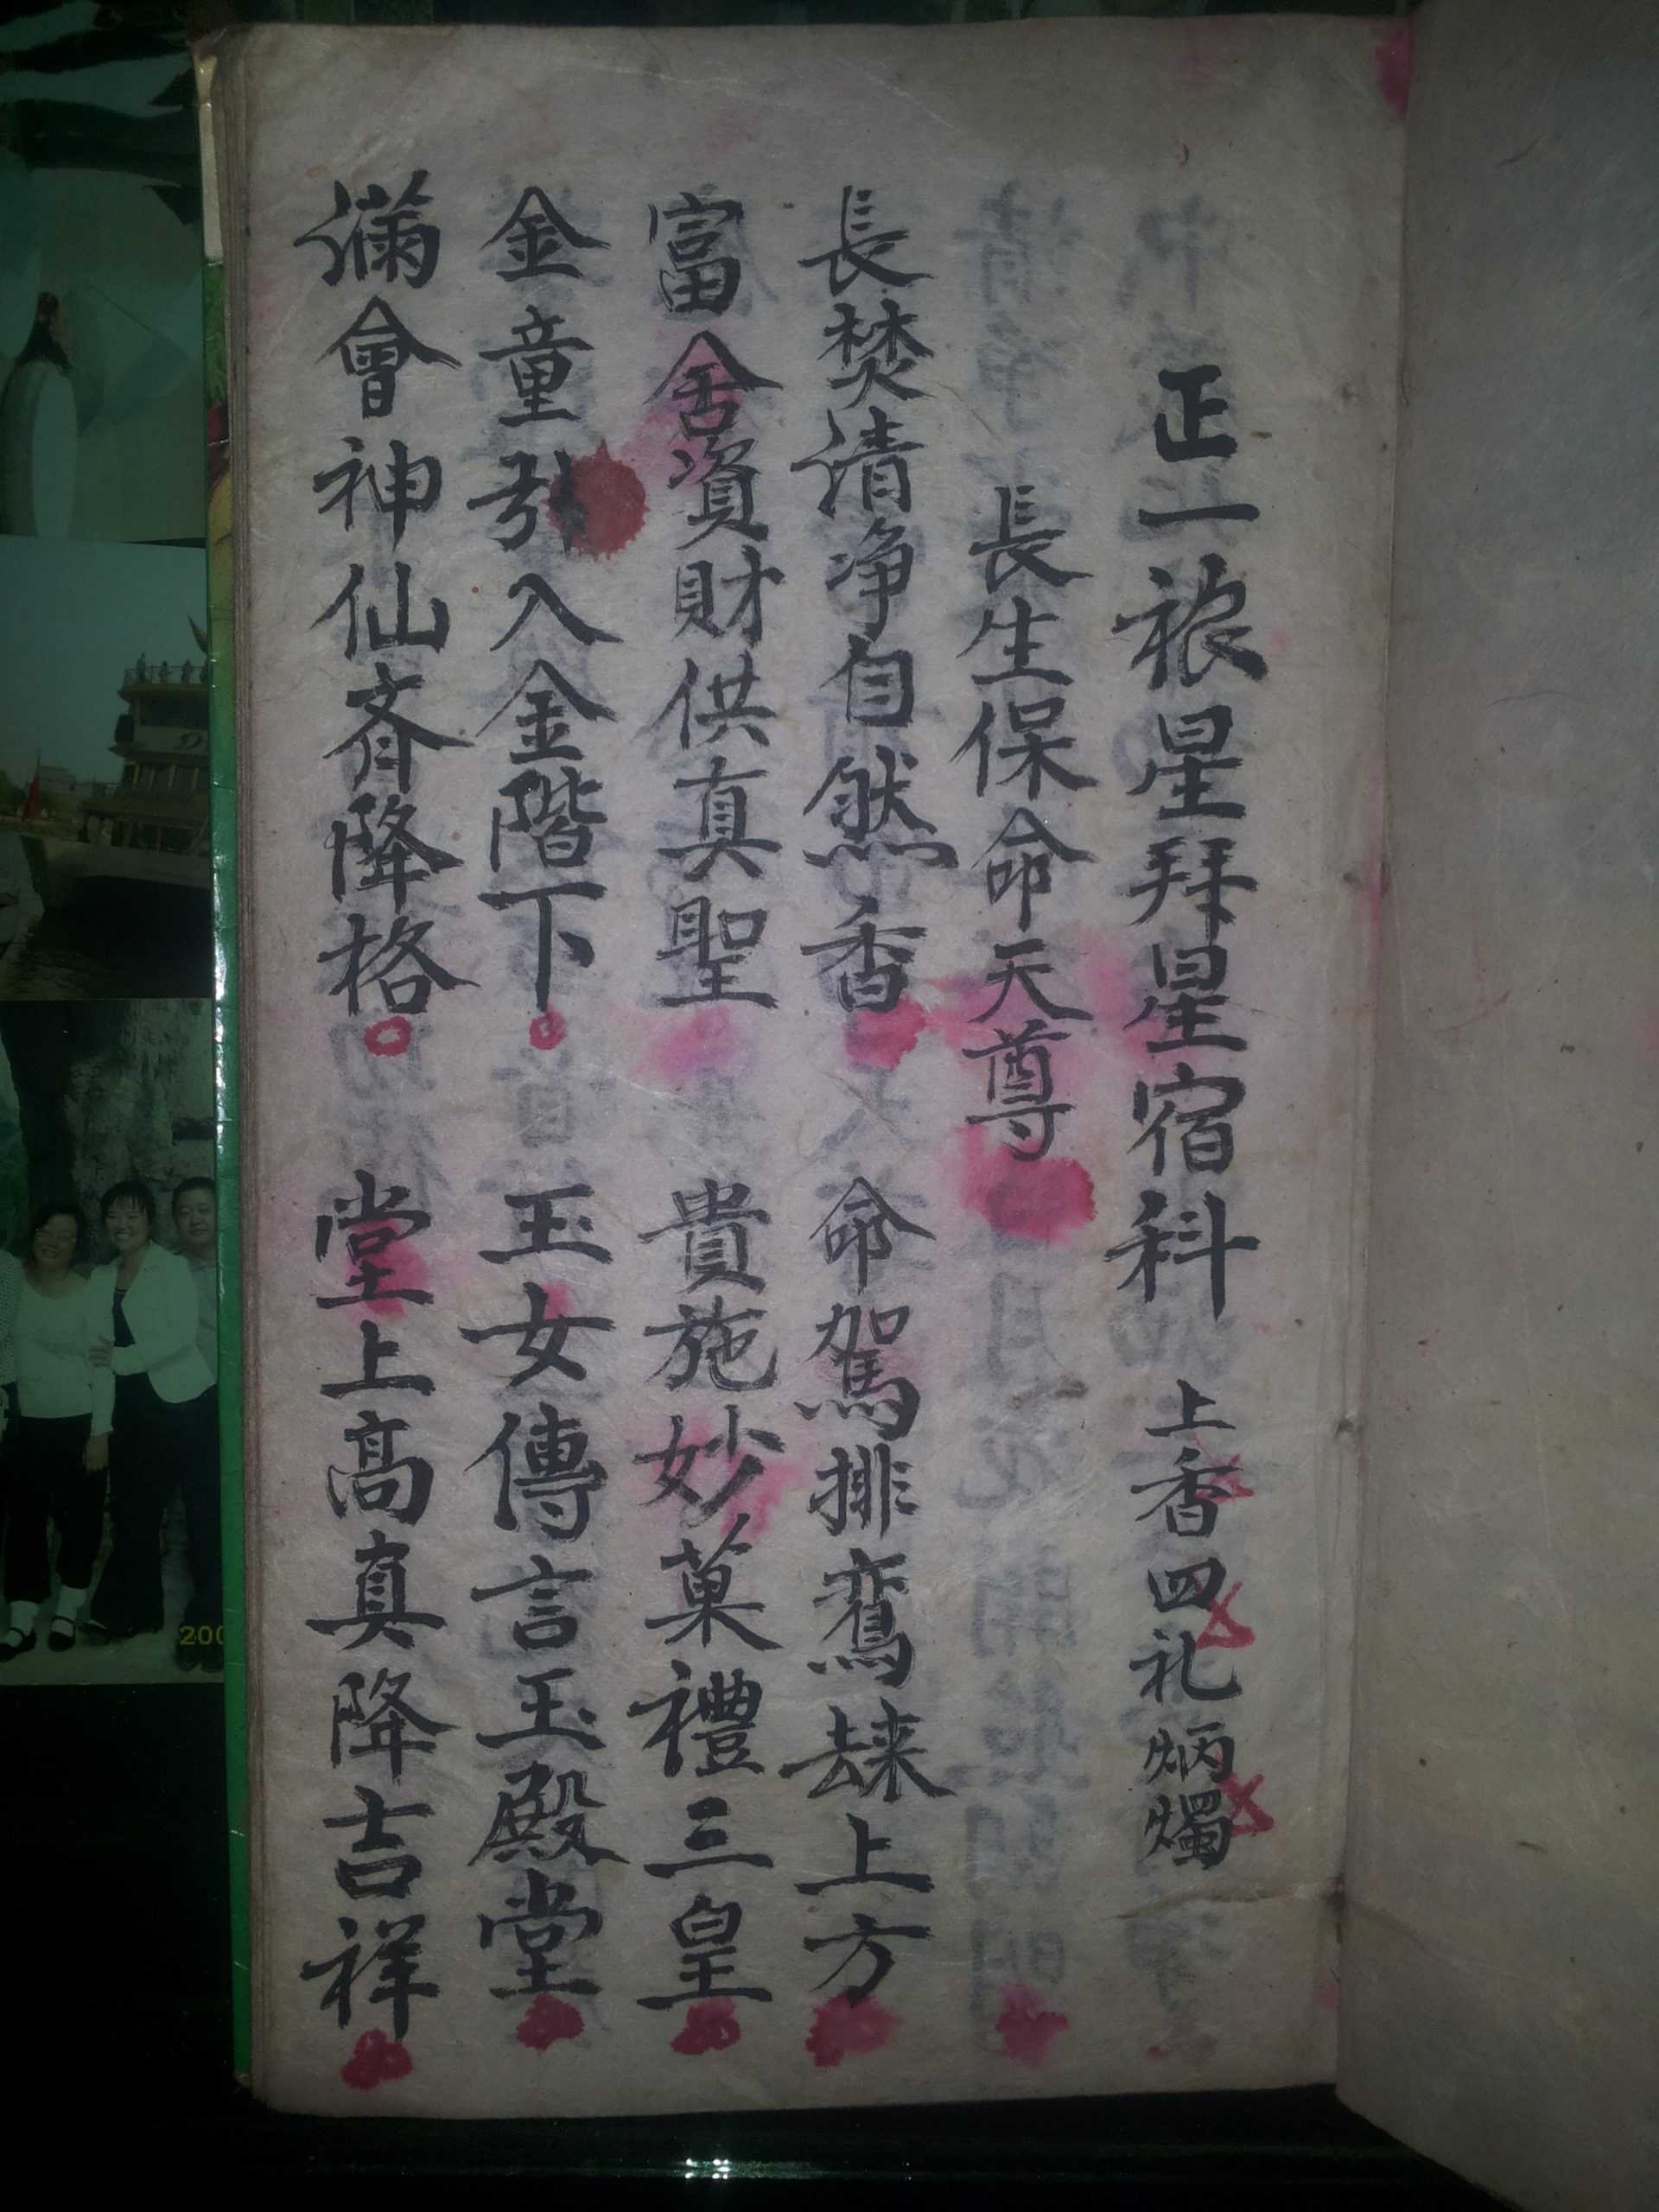 正一禳星拜星宿科 上香四礼炳燭
長生保命天尊
長焚清净自然香 命駕排鸞越上方
富舍資財供真聖 貴施妙菓禮三皇
金童引入金階下 玉女傳言玉殿堂
滿會神仙齊降格 堂上高真降吉祥
200